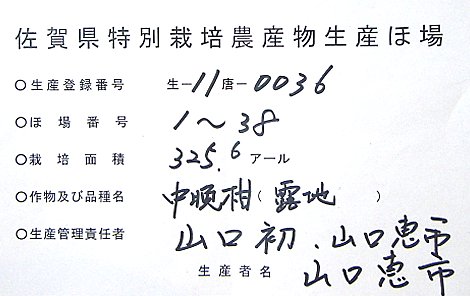 佐賀県特別栽培農産物生産ほ場
○生産登録番号 生ー11唐ー0036
○ほ場番号 1〜38
○栽培面積 325.6アール
○作物及び品種名 中晩柑(露地)
○生産管理責任者 山口初、山口恵市
生産者名 山口恵市